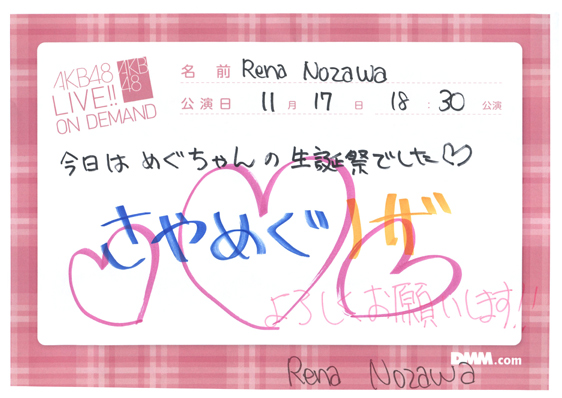 AKB48
LIVE!!
ON DEMAND
AKB
48
名前 Rena Nozawa
公演日 11月 17日 18:30 公演
今日は めぐちゃん の 生誕祭でした♡
さやめぐ
よろしくお願いします!!
DMM.com
Rena Nozawa